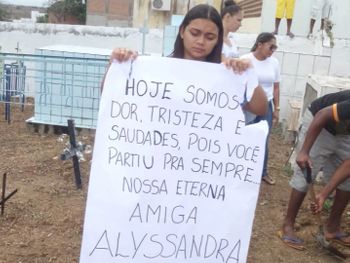 HOJE SOMOS
DOR, TRISTEZA E
SAUDADES, POIS VOCÊ
PARTIU PRA SEMPRE...
NOSSA ETERNA
AMIGA
ALYSSANDRA